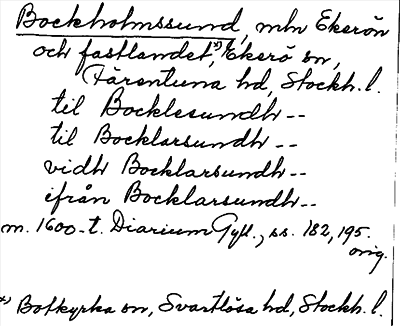 Bockholmssund, mln Ekerön
och fastlandet,*) Ekerö sn,
Färentuna hd, Stockh. l.
til Bocklesundh --
til Bocklarsundh --
vidh Bocklarsundh --
ifrån Bocklarsundh --
m. 1600-t. Diarium Gyll., ss. 182, 195.
orig.
*) Botkyrka sn, Svartlösa hd, Stockh. l.